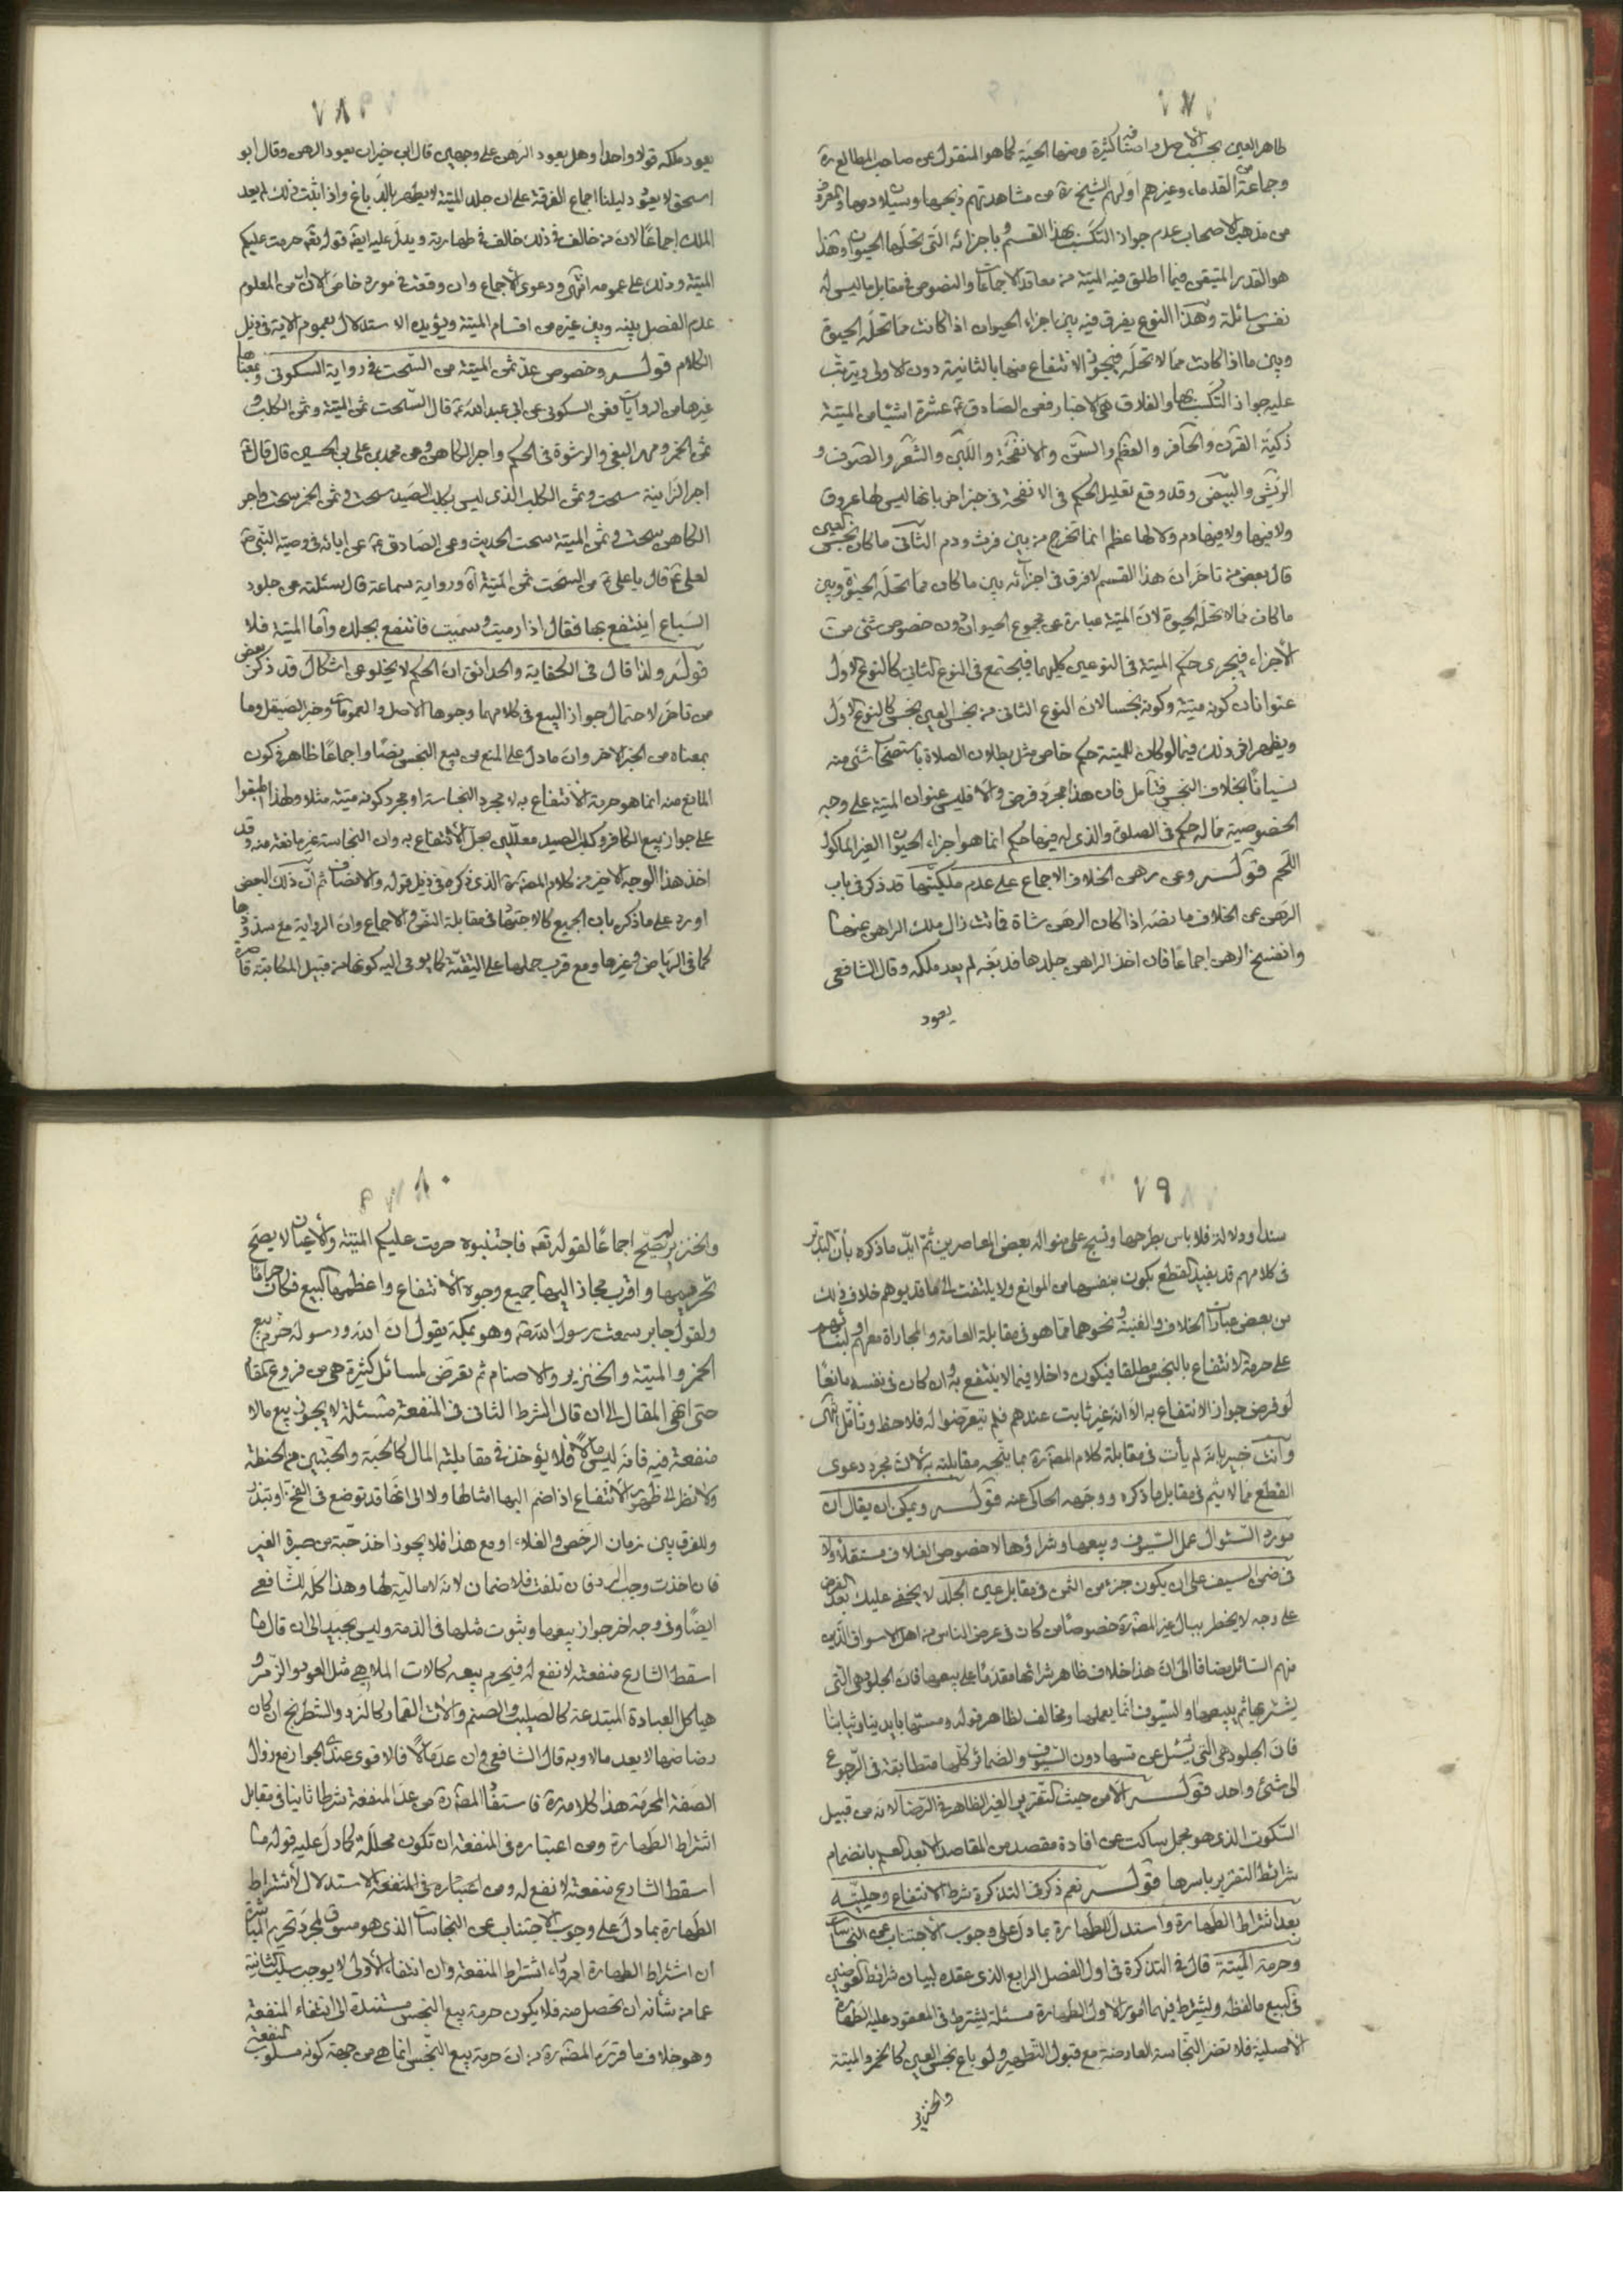 ٧٧
طاهر العين بحسب الأصل واصنافه كثيرة ومنها الحية كما هو المنقول عن صاحب المطالع ره
وجماعة من القدماء وغيرهم اولهم الشيخ ره من مشاهدتهم ذبحها وسيلان دمها والمعروف
من مذهب الاصحاب عدم جواز التكسب بهذا القسم وباجزائه التي تحلها الحيوة وهذا
هو القدر المتيقن فيما اطلق فيه الميتة من معاقد الاجماعات والنصوص في مقابل ما ليس له
نفس سائلة وهذا النوع يفرق فيه بين اجزاء الحيوان اذا كانت مما تحله الحيوة
وبين ما اذا كانت مما لا تحله فيجوز الانتفاع منها بالثانية دون الاولى ويترتب
عليه جواز التكسب بها والفارق هي الاخبار فعن الصادق ع عشرة اشياء من الميتة
ذكية القرن والحافر والعظم والسن والانفحة واللبن والشعر والصوف و
الريش والبيض وقد وقع تعليل الحكم في الانفحة في خبر اخر بانها ليس لها عروق
ولا فيها دم ولا لها عظم انما تخرج من بين فرث ودم الثاني ما كان نجس العين
قال بعض من تاخر ان هذا القسم لا فرق في اجزائه بين ما كان مما تحله الحيوة وبين
ما كان مما لا تحله الحيوة لان الميتة عبارة عن مجموع الحيوان دون خصوص شئ من
الأجزاء فيجرى حكم الميتة في النوعين كليهما فيجتمع في النوع الثاني كالنوع الاول
عنوانان كونه ميتة وكونه نجسا لان النوع الثاني من نجس العين نجس كالنوع الاول
ويظهر اثر ذلك فيما لو كان للميتة حكم خاص مثل بطلان الصلاة باستصحاب شئ منه
نسيانا بخلاف النجس فتأمل فان هذا مجرد فرض والا فليس عنوان الميتة على وجه
الخصوصية مما له حكم في الصلوة والذي له فيها حكم انما هو اجزاء الحيوان الغير المأكول
اللحم قوله وعن رهن الخلاف الاجماع على عدم ملكيتها قد ذكر في باب
الرهن من الخلاف ما نصه اذا كان الرهن شاة فماتت زال ملك الراهن عنها
وانفسخ الرهن اجماعا فان اخذ الراهن جلدها فدبغه لم يعد ملكه وقال الشافعي
يعود
٧٨
يعود ملكه قولا واحدا وهل يعود الرهن على وجهين قال ابن خيران يعود الرهن وقال ابو
اسحق لا يعود دليلنا اجماع الفرقة على ان جلد الميتة لا يطهر بالدباغ واذا ثبت ذلك لم يعد
الملك اجماعا لان من خالف في ذلك خالف في طهارته ويدل عليه ايضا قوله تعالى حرمت عليكم
الميتة وذلك على عمومه انتهى ودعوى الأجماع وان وقعت في مورد خاص الا ان من المعلوم
عدم الفصل بينه وبين غيره من اقسام الميتة ويؤيده الاستدلال بعموم الاية في ذيل
الكلام قوله وخصوص عد ثمن الميتة من السحت في رواية السكوني وبمعناها
غيرها من الروايات فعن السكوني عن ابي عبد الله ع قال السحت ثمن الميتة وثمن الكلب و
ثمن الخمر ومهر البغي والرشوة في الحكم واجر الكاهن وعن محمد بن علي بن الحسين قال قال ع
اجر الزانية سحت وثمن الكلب الذي ليس بكلب الصيد سحت وثمن الخمر سحت واجر
الكاهن سحت وثمن الميتة سحت الحديث وعن الصادق ع عن ابائه في وصية النبي ص
لعلي ع قال يا علي ع من السحت ثمن الميتة اه ورواية سماعة قال سئلته عن جلود
السباع اينتفع بها فقال اذا رميت وسميت فانتفع بجلده وأما الميتة فلا
قوله ولذا قال في الكفاية والحدائق ان الحكم لا يخلو عن اشكال قد ذكر بعض
من تاخر لاحتمال جواز البيع في كلامهما وجوها الاصل والعمومات وخبر الصيقل وما
بمعناه من الخبر الاخر وان ما دل على المنع من بيع النجس نصا واجماعا ظاهر في كون
المانع منه انما هو حرمة الانتفاع به لا مجرد النجاسة او مجرد كونه ميتة مثلا ولهذا اطبقوا
على جواز بيع الكافر وكلب الصيد معللين بحل الأنتفاع به وان النجاسة غير مانعة منه وقد
اخذ هذا الوجه الاخير من كلام المصنف ره الذي ذكره في ذيل قوله والانصاف ثم ان ذلك البعض
اورد على ما ذكر بان الجميع كالاجتهاد في مقابلة النص والاجماع وان الرواية مع سندها
كما في الرياض وغيرها ومع قرب حملها على التقية كما يومى اليه كونها من قبيل المكاتبة قاصرة
٧٩
سندا ودلالة فلا باس بطرحها ونسج على منواله بعض المعاصرين ثم ايد ما ذكره بأن التدبر
في كلامهم قد يفيد القطع بكون نفسها من الموانع ولا يلتفت الى ما قد يوهم خلاف ذلك
من بعض عبارات الخلاف والغنية ونحوهما مما هو في مقابلة العامة والمجاراة معهم او لبنائهم
على حرمة الانتفاع بالنجس مطلقا فيكون داخلا فيما لا ينتفع به وان كان في نفسه مانعا
لو فرض جواز الانتفاع به الا انه غير ثابت عندهم فلم يتعرضوا له فلاحظ وتأمل انتهى
وأنت خبير بانه لم يأت في مقابلة كلام المصنف ره بما يتجه مقابلته به لان مجرد دعوى
القطع مما لا يثم في مقابل ما ذكره ووجهه الحاكى عنه قوله ويمكن ان يقال ان
مورد السئوال عمل السيوف وبيعها وشراؤها لا خصوص الغلاف مستقلا ولا
في ضمن السيف على ان يكون جزء من الثمن في مقابل عين الجلد لا يخفى عليك بعد الفرض
على وجه لا يخطر ببال غير المصنف ره خصوصا من كان في عرض الناس من اهل الاسواق الذين
منهم السائل مضافا الى ان هذا خلاف ظاهر شرائها مقدما على بيعها فان الجلود هي التي
يشتريها ثم يبيعها والسيوف انما يعملها ومخالف لظاهر قوله ومستها بايدينا وثيابنا
فان الجلود هي التي يسئل عن مسها دون السيوف والضمائر كلها متطابقة في الرجوع
الى شئ واحد قوله الا من حيث التقرير الغير الظاهر في الرضا لانه من قبيل
السكوت الذي هو مجمل ساكت عن افادة مقصد من المقاصد الا بعد العلم بانضمام
شرائط التقرير باسرها قوله نعم ذكر في التذكرة شرط الانتفاع وحليته
بعد اشتراط الطهارة واستدل للطهارة بما دل على وجوب الأجتناب عن النجاسات
وحرمة الميتة قال في التذكرة في اول الفصل الرابع الذي عقده لبيان شرائط العوضين
في البيع ما لفظه ويشترط فيهما امور الاول الطهارة مسئلة يشترط في المعقود عليه الطهارة
الأصلية فلا تضر النجاسة العارضة مع قبول التطهير ولو باع نجس العين كالخمر والميتة
والخنزير
٨٠
والخنزير لم يصح اجماعا لقوله تعالى فاجتنبوه حرمت عليكم الميتة والأعيان لا يصح
تحريمها واقرب مجاز اليها جميع وجوه الأنتفاع واعظمها البيع فكان حراما
ولقول جابر سمعت رسول الله ص وهو بمكة يقول ان الله ورسوله حرم بيع
الخمر والميتة والخنزير والاصنام ثم تعرض لمسائل كثيرة هي من فروع المقام
حتى انتهى المقال الى ان قال الشرط الثاني المنفعة مسئلة لا يجوز بيع ما لا
منفعة فيه فانه ليس مالا فلا يؤخذ في مقابلته المال كالحبة والحبتين من الحنطة
ولا نظر الى ظهور الأنتفاع اذا ضم اليها امثالها ولا الى انها قد توضع في الفخ او تبذر
وللفرق بين زمان الرخص والغلاء ومع هذا فلا يجوز اخذ حبة من صبرة الغير
فان اخذت وجب الرد فان تلفت فلا ضمان لانه لا مالية لها وهذا كله للشافعي
ايضا وفي وجه اخر جواز بيعها وثبوت مثلها في الذمة وليس بجيد الى ان قال ما
اسقط الشارع منفعته لا نفع له فيحرم بيعه كالات الملاهي مثل العود والزمر و
هياكل العبادة المبتدعة كالصليب والصنم والات القمار كالنرد والشطرنج ان كان
رضاضها لا يعد مالا وبه قال الشافعي وان عد مالا فالاقوى عندي الجواز مع زوال
الصفة المحرمة هذا كلامه ره فاستفاد المصنف ره من عد المنفعة شرطا ثانيا في مقابل
اشتراط الطهارة ومن اعتباره في المنفعة ان تكون محللة كما دل عليه قوله ما
اسقط الشارع منفعته لا نفع له ومن اعتباره في المنفعة الاستدلال لأشتراط
الطهارة بما دل على وجوب الاجتناب عن النجاسات الذي هو مسوق لمجرد تحريم المباشرة
ان اشتراط الطهارة اجراء اشتراط المنفعة وان انتفاء الأولى لا يوجب سلب الثانية
عما من شأنه ان تحصل منه فلا يكون حرمة بيع النجس مستندة الى انتفاء المنفعة
وهو خلاف ما قرره المصنف ره من ان حرمة بيع النجس انما هي من جهة كونه مسلوب المنفعة